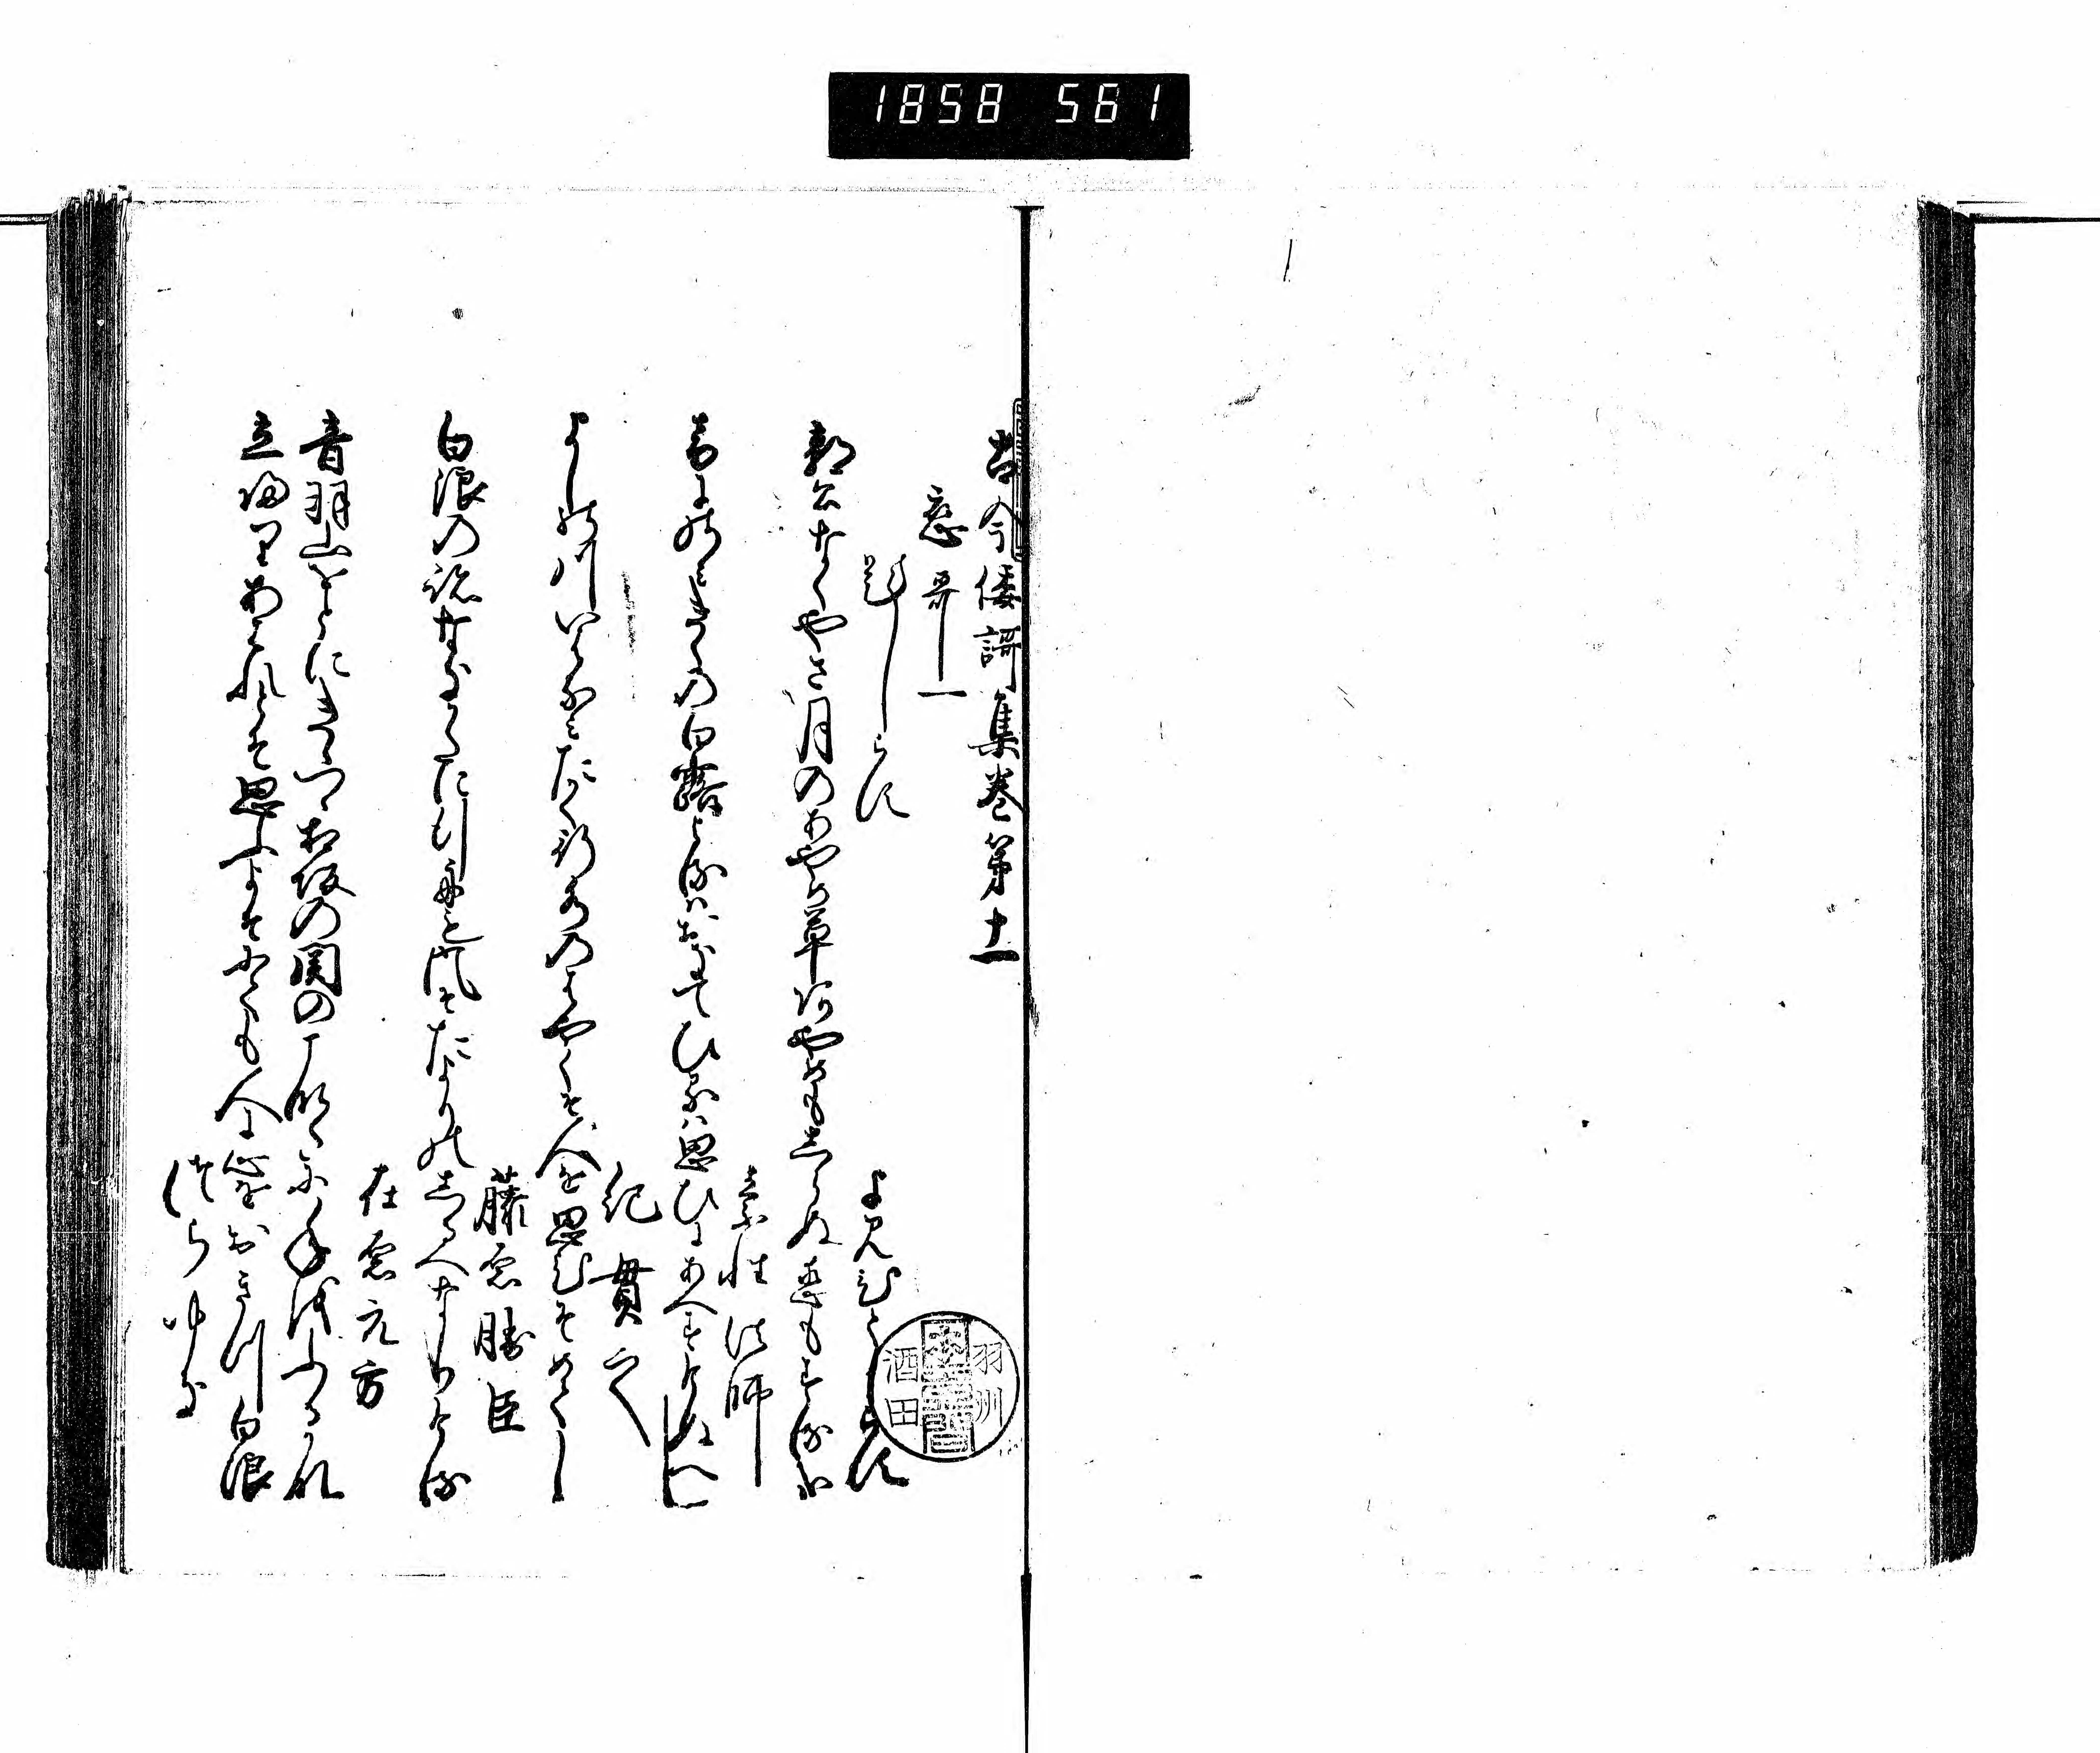 1858 561
古今倭謌集巻第十一
恋哥一
題しらす
よみ人しらす
郭公なくや五月のあやめ草あやめもしらぬ恋もする哉
素性法師
音にのみきくの白露よるはおきてひるは思ひにあへすけぬへし
紀貫之
よしの川いはなみたかく行水のはやくそ人を思ひそめてし
藤原勝臣
白浪の跡なきかたに行舟も風そたよりのしるへなりける
在原元方
音羽山をとにきゝつゝ相坂の関のこなたに年をふるかな
立帰りあはれとそ思ふよそにても人に心をおきつ白浪
つらゆき
羽州
酒田